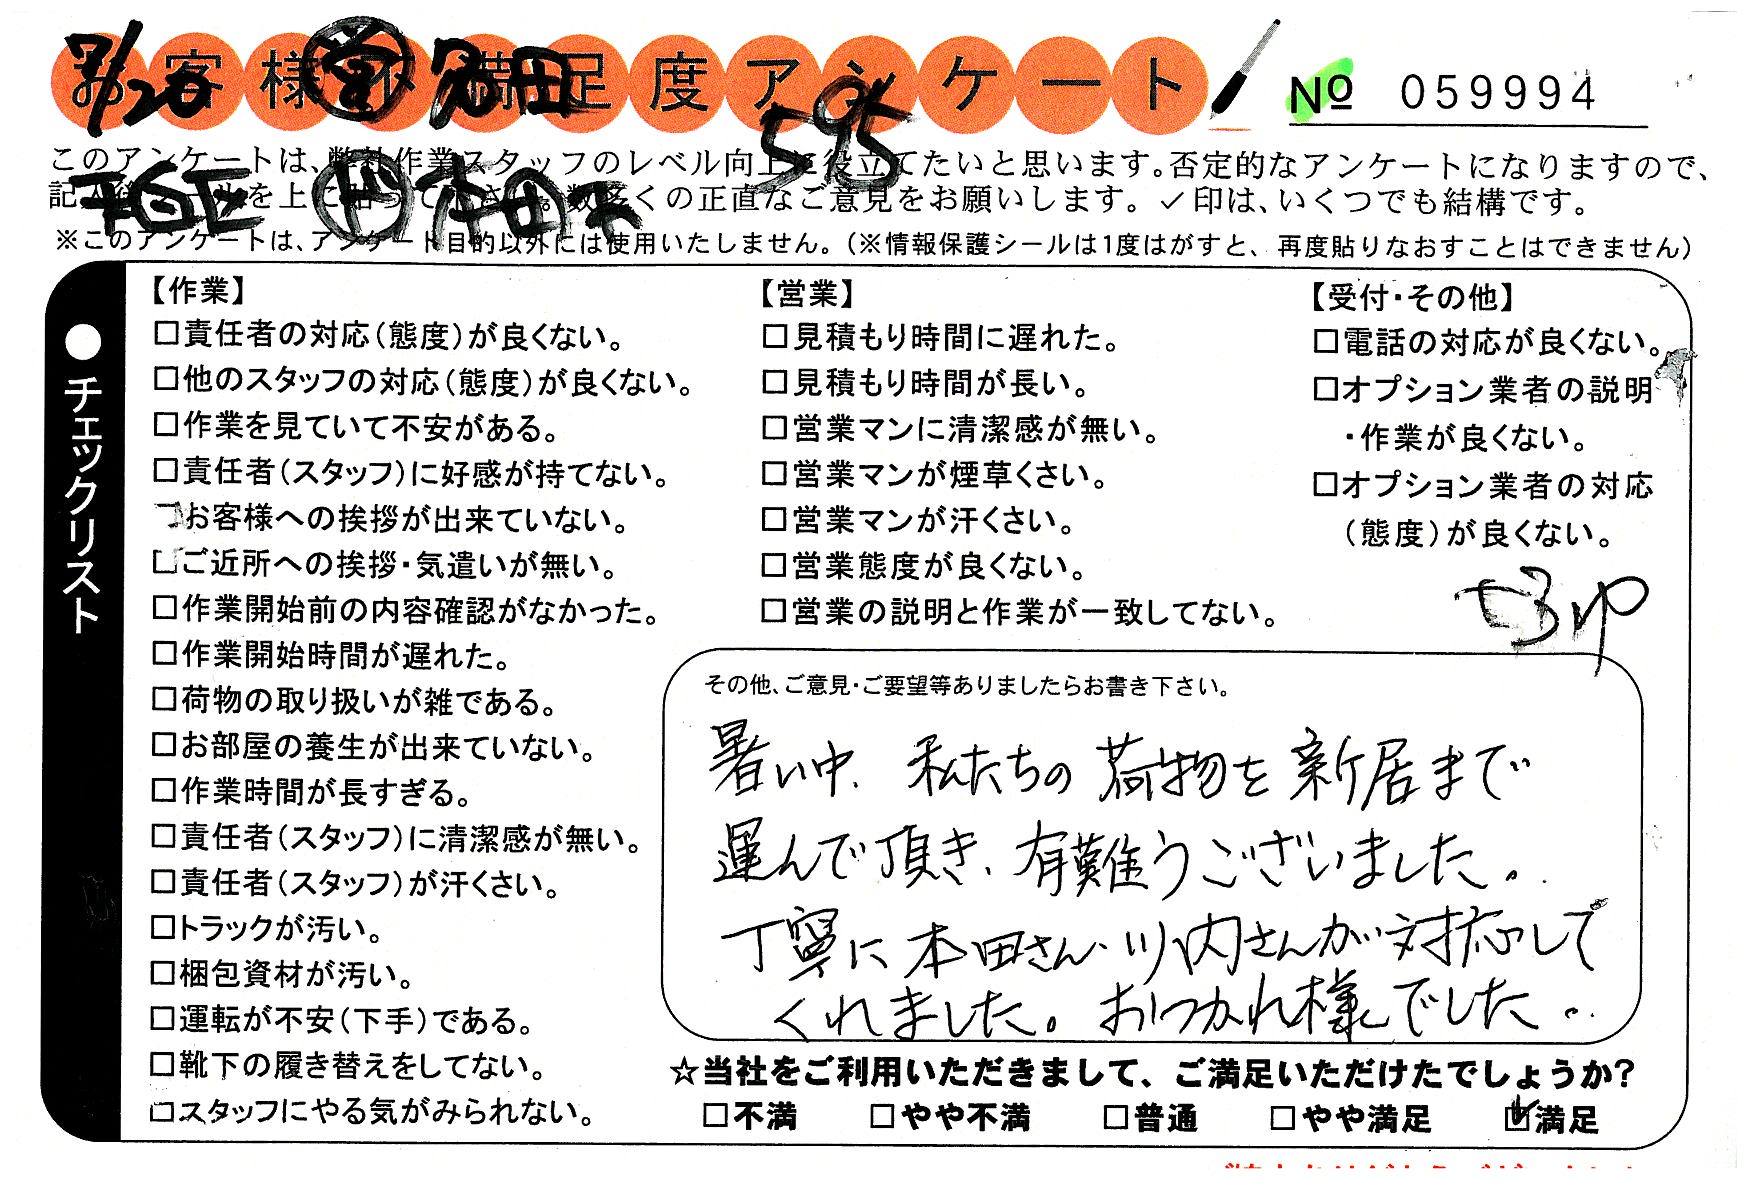 お客様不満足度アンケート
7/20
595
№ 059994
このアンケートは、弊社作業スタッフのレベル向上に役立てたいと思います。否定的なアンケートになりますので、
を上に貼って下さい。数多くの正直なご意見をお願いします。✓印は、いくつでも結構です。
※このアンケートは、アンケート目的以外には使用いたしません。（※情報保護シールは1度はがすと、再度貼りなおすことはできません）
●チェックリスト
【作業】
□責任者の対応（態度）が良くない。
□他のスタッフの対応（態度）が良くない。
□作業を見ていて不安がある。
□責任者（スタッフ）に好感が持てない。
□お客様への挨拶が出来ていない。
□ご近所への挨拶・気遣いが無い。
□作業開始前の内容確認がなかった。
□作業開始時間が遅れた。
□荷物の取り扱いが雑である。
□お部屋の養生が出来ていない。
□作業時間が長すぎる。
□責任者（スタッフ）に清潔感が無い。
□責任者（スタッフ）が汗くさい。
□トラックが汚い。
□梱包資材が汚い。
□運転が不安（下手）である。
□靴下の履き替えをしてない。
□スタッフにやる気がみられない。
【営業】
□見積もり時間に遅れた。
□見積もり時間が長い。
□営業マンに清潔感が無い。
□営業マンが煙草くさい。
□営業マンが汗くさい。
□営業態度が良くない。
□営業の説明と作業が一致してない。
【受付・その他】
□電話の対応が良くない。
□オプション業者の説明
・作業が良くない。
□オプション業者の対応
（態度）が良くない。
その他、ご意見・ご要望等ありましたらお書き下さい。
暑い中、私たちの荷物を新居まで
運んで頂き、有難うございました。
丁寧に本田さん、川内さんが対応して
くれました。おつかれ様でした。
☆当社をご利用いただきまして、ご満足いただけたでしょうか？
□不満 □やや不満 □普通 □やや満足 ☑満足